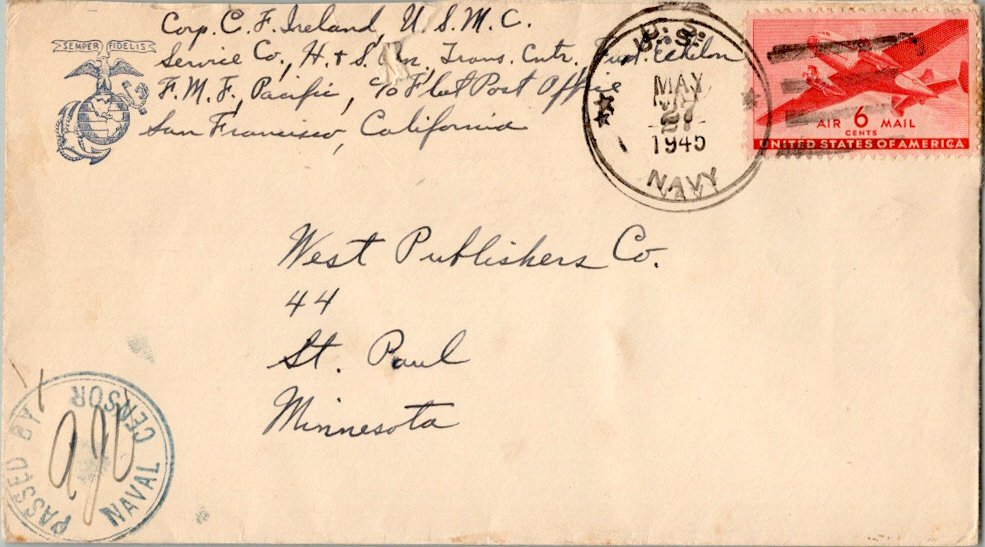 SEMPER FIDELIS
Corp. C. F. Ireland, U. S. M. C.
Service Co., H. & S. Bn. Trans. Cntr. Echelon
F. M. F. Pacific, c/o Fleet Post Office
San Francisco, California
U. S.
MAY
1945
NAVY
AIR 6 MAIL
CENTS
UNITED STATES OF AMERICA
West Publishers Co.
44
St. Paul
Minnesota
PASSED BY
NAVAL CENSOR